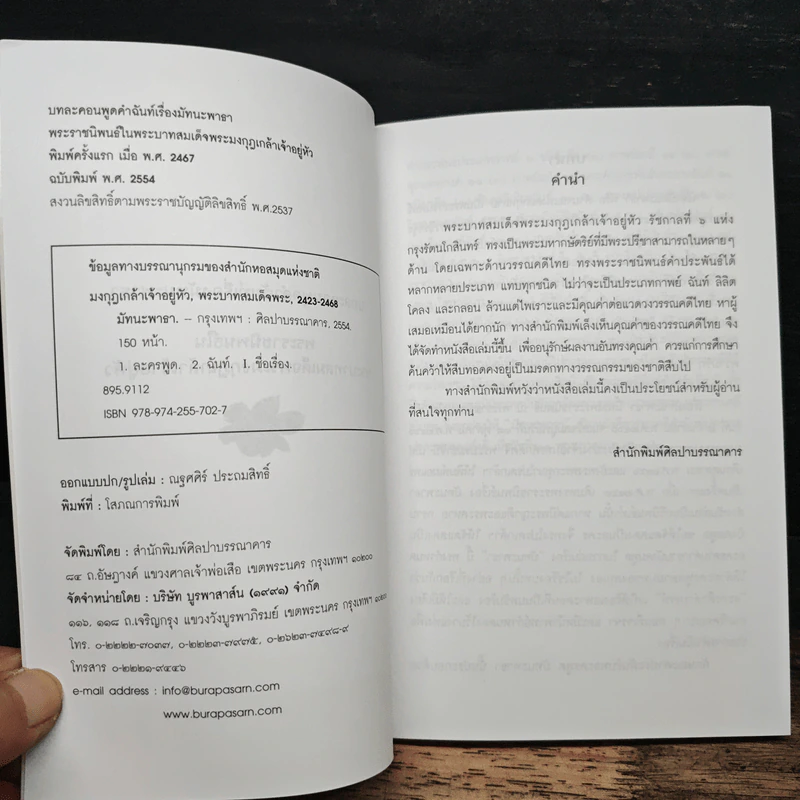 บทละคอนพูดคำฉันท์เรื่องมัทนะพาธา
พระราชนิพนธ์ในพระบาทสมเด็จพระมงกุฎเกล้าเจ้าอยู่หัว
พิมพ์ครั้งแรก เมื่อ พ.ศ. 2467
ฉบับพิมพ์ พ.ศ. 2554
สงวนลิขสิทธิ์ตามพระราชบัญญัติลิขสิทธิ์ พ.ศ.2537
ข้อมูลทางบรรณานุกรมของสำนักหอสมุดแห่งชาติ
มงกุฎเกล้าเจ้าอยู่หัว, พระบาทสมเด็จพระ, 2423-2468
มัทนะพาธา. – กรุงเทพฯ : ศิลปาบรรณาคาร, 2554.
150 หน้า.
1. ละครพูด. 2. ฉันท์. I. ชื่อเรื่อง.
895.9112
ISBN 978-974-255-702-7
ออกแบบปก/รูปเล่ม : ณฐศศิร์ ประถมสิทธิ์
พิมพ์ที่ : โสภณการพิมพ์
จัดพิมพ์โดย : สำนักพิมพ์ศิลปาบรรณาคาร
๘๔ ถ.อัษฎางค์ แขวงศาลเจ้าพ่อเสือ เขตพระนคร กรุงเทพฯ ๑๐๒๐๐
จัดจำหน่ายโดย : บริษัท บูรพาสาส์น (๑๙๙๑) จำกัด
๑๑๖, ๑๑๘ ถ.เจริญกรุง แขวงวังบูรพาภิรมย์ เขตพระนคร กรุงเทพฯ ๑๐๒๐๐
โทร. ๐-๒๒๒๒-๗๐๓๗, ๐-๒๒๒๓-๗๙๗๕, ๐-๒๖๒๓-๗๔๙๘-๙
โทรสาร ๐-๒๒๒๑-๙๔๔๖
e-mail address : info@burapasarn.com
www.burapasarn.com
คำนำ
พระบาทสมเด็จพระมงกุฎเกล้าเจ้าอยู่หัว รัชกาลที่ ๖ แห่ง
กรุงรัตนโกสินทร์ ทรงเป็นพระมหากษัตริย์ที่มีพระปรีชาสามารถในหลายๆ
ด้าน โดยเฉพาะด้านวรรณคดีไทย ทรงพระราชนิพนธ์คำประพันธ์ได้
หลากหลายประเภท แทบทุกชนิด ไม่ว่าจะเป็นประเภทกาพย์ ฉันท์ ลิลิต
โคลง และกลอน ล้วนแต่ไพเราะและมีคุณค่าต่อแวดวงวรรณคดีไทย หาผู้
เสมอเหมือนได้ยากนัก ทางสำนักพิมพ์เล็งเห็นคุณค่าของวรรณคดีไทย จึง
ได้จัดทำหนังสือเล่มนี้ขึ้น เพื่ออนุรักษ์ผลงานอันทรงคุณค่า ควรแก่การศึกษา
ค้นคว้าให้สืบทอดคงอยู่เป็นมรดกทางวรรณกรรมของชาติสืบไป
ทางสำนักพิมพ์หวังว่าหนังสือเล่มนี้คงเป็นประโยชน์สำหรับผู้อ่าน
ที่สนใจทุกท่าน
สำนักพิมพ์ศิลปาบรรณาคาร